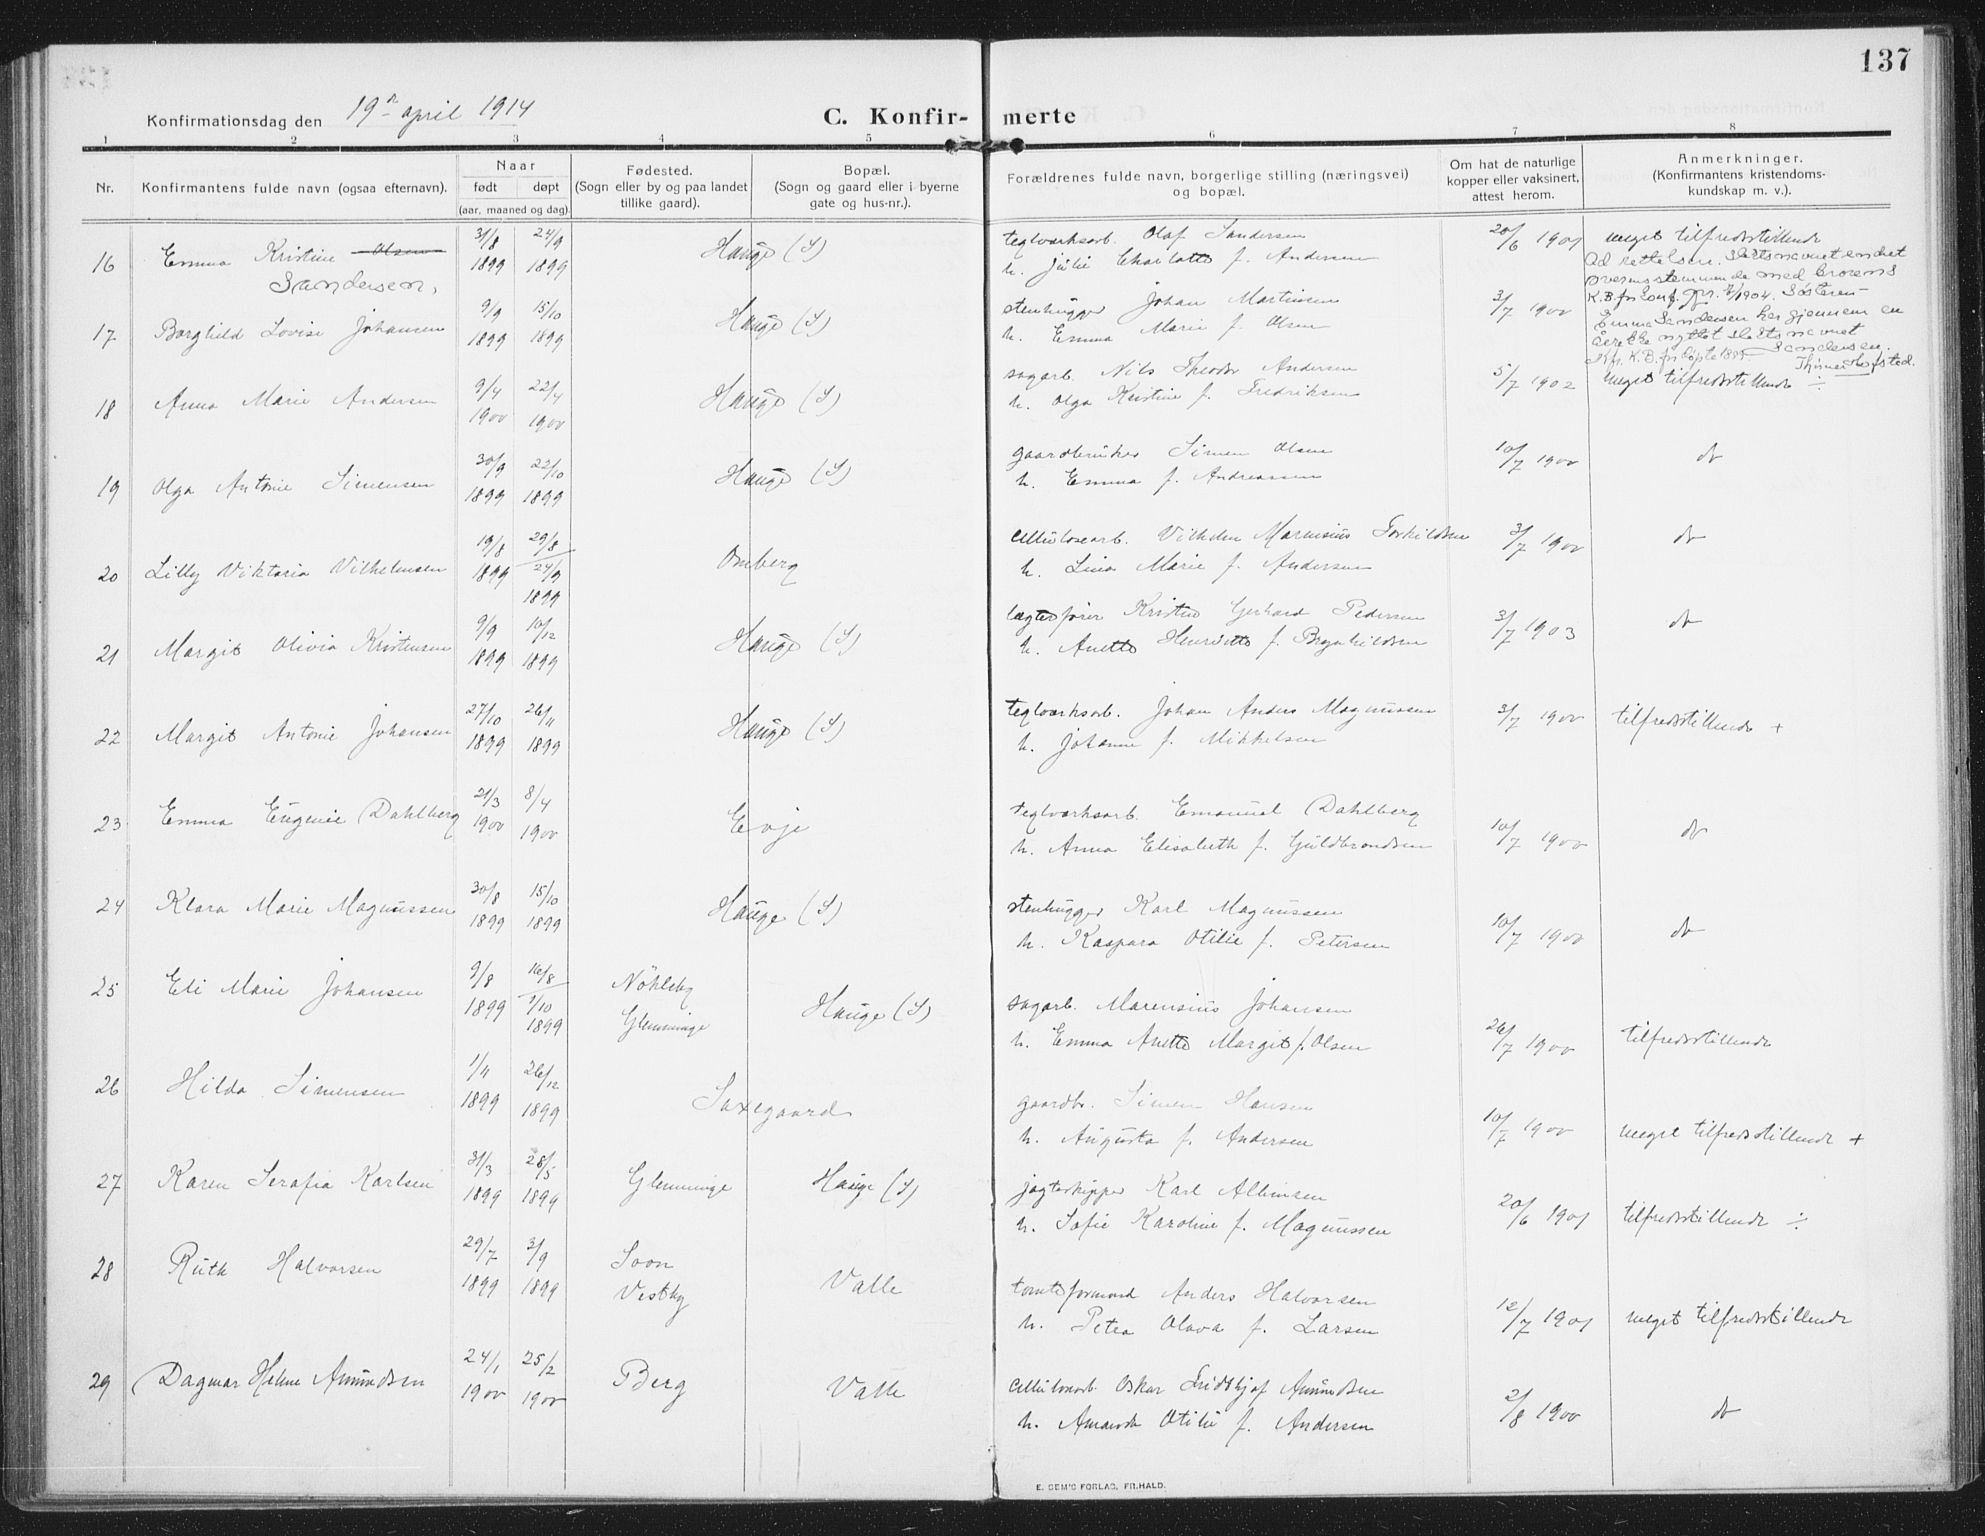 137
Konfirmationsdag den 19de april 1914
C. Konfirmerte
1 2 3 4 5 6 7 8
Nr.
Konfirmantens fulde navn (ogsaa efternavn).
Naar
født døpt
(aar, maaned og dag).
Fødested.
(Sogn eller by og paa landet
tillike gaard).
Bopæl.
(Sogn og gaard eller i byerne
gate og hus-nr.).
Forældrenes fulde navn, borgerlige stilling (næringsvei)
og bopæl.
Om hat de naturlige
kopper eller vaksinert,
attest herom.
Anmerkninger.
(Konfirmantens kristendoms-
kundskap m. v.).
16 Emma Kristine Olsen 31/8 24/9 Hauge (S) teglverksarb. Olaf Sandersen 20/6 1901 meget tilfredsstillende
Sandersen. 1899 1899 h. Julie Charlotte f. Andersen
Ad rettelsen: Slektsnavnet endret
overensstemmende med brorens
K.B. for konf. 1904. Søsteren
Emma Sandersen har gjennem en
årrekke nyttet slektsnavnet
Sandersen.
17 Borghild Lovise Johansen 9/9 15/10 Hauge (S) stenhugger Johan Martinsen 3/7 1900
1899 1899 h. Emma Marie f. Olsen
18 Anna Marie Andersen 9/4 22/4 Hauge (S) sagarb. Nils Theodor Andersen 5/7 1902 meget tilfredsstillende ÷
1900 1900 h. Olga Kristine f. Fredriksen
19 Olga Antonie Simensen 30/9 22/10 Hauge (S) gaardbruker Simen Olsen 10/7 1900 do
1899 1899 h. Emma f. Andreassen
20 Lilly Viktoria Vilhelmsen 19/8 29/8 Omberg cellulosearb. Vilhelm Marensius Torkildsen 3/7 1900 do
1899 24/9 h. Lina Marie f. Andersen
1899
21 Margit Olivia Kristensen 9/9 10/12 Hauge (S) lægterfører Kristen Gerhard Pedersen 3/7 1903 do
1899 1899 h. Anette Henriette f. Brynhildsen
22 Margit Antonie Johansen 27/10 26/11 Hauge (S) teglverksarb. Johan Anders Magnussen 3/7 1900 tilfredsstillende +
1899 1899 h. Johanne f. Mikkelsen
23 Emma Eugenie Dahlberg 21/3 8/4 Evje teglverksarb. Emanuel Dahlberg 10/7 1900 do
1900 1900 h. Anna Elisabeth f. Guldbrandsen
24 Klara Marie Magnussen 30/8 15/10 Hauge (S) stenhugger Karl Magnussen 10/7 1900 do
1899 1899 h. Kaspara Otilie f. Petersen
25 Eli Marie Johansen 9/8 16/8 Nöhleby Hauge (S) sagarb. Marensius Johansen 26/7 1900 tilfredsstillende
1899 1/10 Glemminge h. Emma Anette Margit f. Olsen
1899
26 Hilda Simensen 1/11 26/12 Saxegaard gaardbr. Simen Hansen 10/7 1900 meget tilfredsstillende +
1899 1899 h. Augusta f. Andersen
27 Karen Serafia Karlsen 31/3 28/5 Glemminge Hauge (S) jagtskipper Karl Albinsen 20/6 1901 tilfredsstillende ÷
1899 1899 h. Sofie Karoline f. Magnussen
28 Ruth Halvorsen 29/7 3/9 Soon Valle tomteformand Anders Halvorsen 12/7 1901 meget tilfredsstillende
1899 1899 Vestby h. Petra Olava f. Larsen
29 Dagmar Helene Amundsen 24/1 25/2 Berg Valle cellulosearb. Oskar Fridthjof Amundsen 2/8 1900 do
1900 1900 h. Amanda Otilie f. Andersen
E. SEM'S FORLAG, FR.HALD.